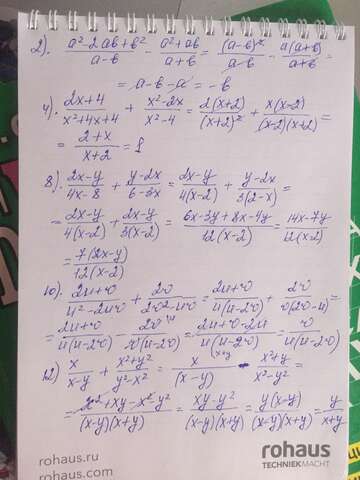 2). (a²-2ab+b²)/(a-b) - (a²+ab)/(a+b) = (a-b)²/(a-b) - a(a+b)/(a+b) =
= a-b-a = -b
4). (2x+4)/(x²+4x+4) + (x²-2x)/(x²-4) = 2(x+2)/(x+2)² + x(x-2)/((x-2)(x+2)) =
= (2+x)/(x+2) = 1
8). (2x-y)/(4x-8) + (y-2x)/(6-3x) = (2x-y)/(4(x-2)) + (y-2x)/(3(2-x)) =
= (2x-y)/(4(x-2)) + (2x-y)/(3(x-2)) = (6x-3y+8x-4y)/(12(x-2)) = (14x-7y)/(12(x-2))
= 7(2x-y)/(12(x-2))
10). (2u+v)/(u²-2uv) + 2v/(2v²-uv) = (2u+v)/(u(u-2v)) + 2v/(v(2v-u)) =
= (2u+v)/(u(u-2v)) - 2v/(v(u-2v)) = (2u+v-2u)/(u(u-2v)) = v/(u(u-2v))
12). x/(x-y) + (x²+y²)/(y²-x²) = x/(x-y) - (x²+y²)/(x²-y²) =
= (x²+xy-x²-y²)/((x-y)(x+y)) = (xy-y²)/((x-y)(x+y)) = y(x-y)/((x-y)(x+y)) = y/(x+y)
rohaus
TECHNIEKMACHT
rohaus.ru
rohaus.com